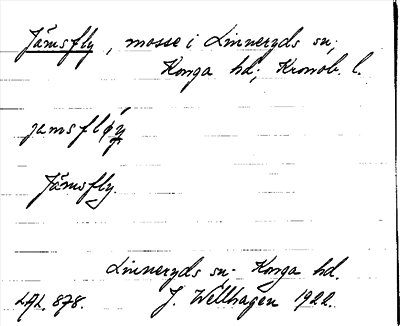 Jämsfly, mosse i Linneryds sn,
Konga hd; Kronob. l.
jamsfløy
Jämsfly.
Linneryds sn. Konga hd.
LAL. 878. J. Wellhagen 1922.